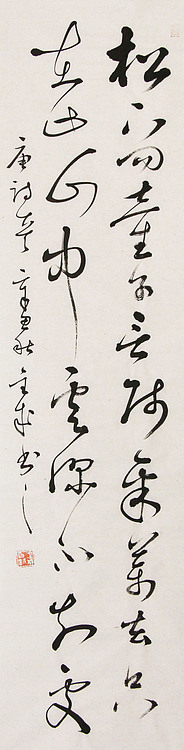 松下問童子言師采藥去只
在此山中雲深不知處
唐詩 辛丑秋 書之